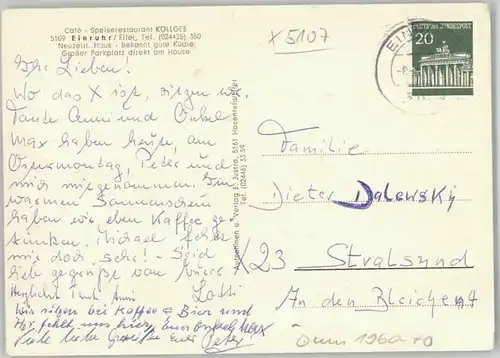 Café - Speiserestaurant KÖLLGES
5109 Einruhr/Eifel, Tel. (02425) 350
Neuzeitl. Haus - Bekannt gute Küche
Großer Parkplatz direkt am Hause
Ihr Lieben!
Wo das X ist, sitzen wir.
Tante Anni und Onkel
Max haben heute, am
Ostermontag, Peter und
mich mitgenommen. Im
warmen Sonnenschein
haben wir eben Kaffee ge-
trunken. Michael fehlt
mir doch sehr! - Seid
lieb gegrüßt von Eurer
Lotti
Herzlichst Tante Anni
Wir sitzen bei Kaffee & Bier und
Ihr fehlt uns hier, Euer Onkel Max
Viele liebe Grüße Euer Peter!
Verlag E. Justra, 5161 Hasenfeld/Eifel
Tel. (02446) 33 59
X 5107
EIN
DEUTSCHE BUNDESPOST
20
Familie
Dieter Dalewsky
X23 Stralsund
An den Bleichen 4
1960-70